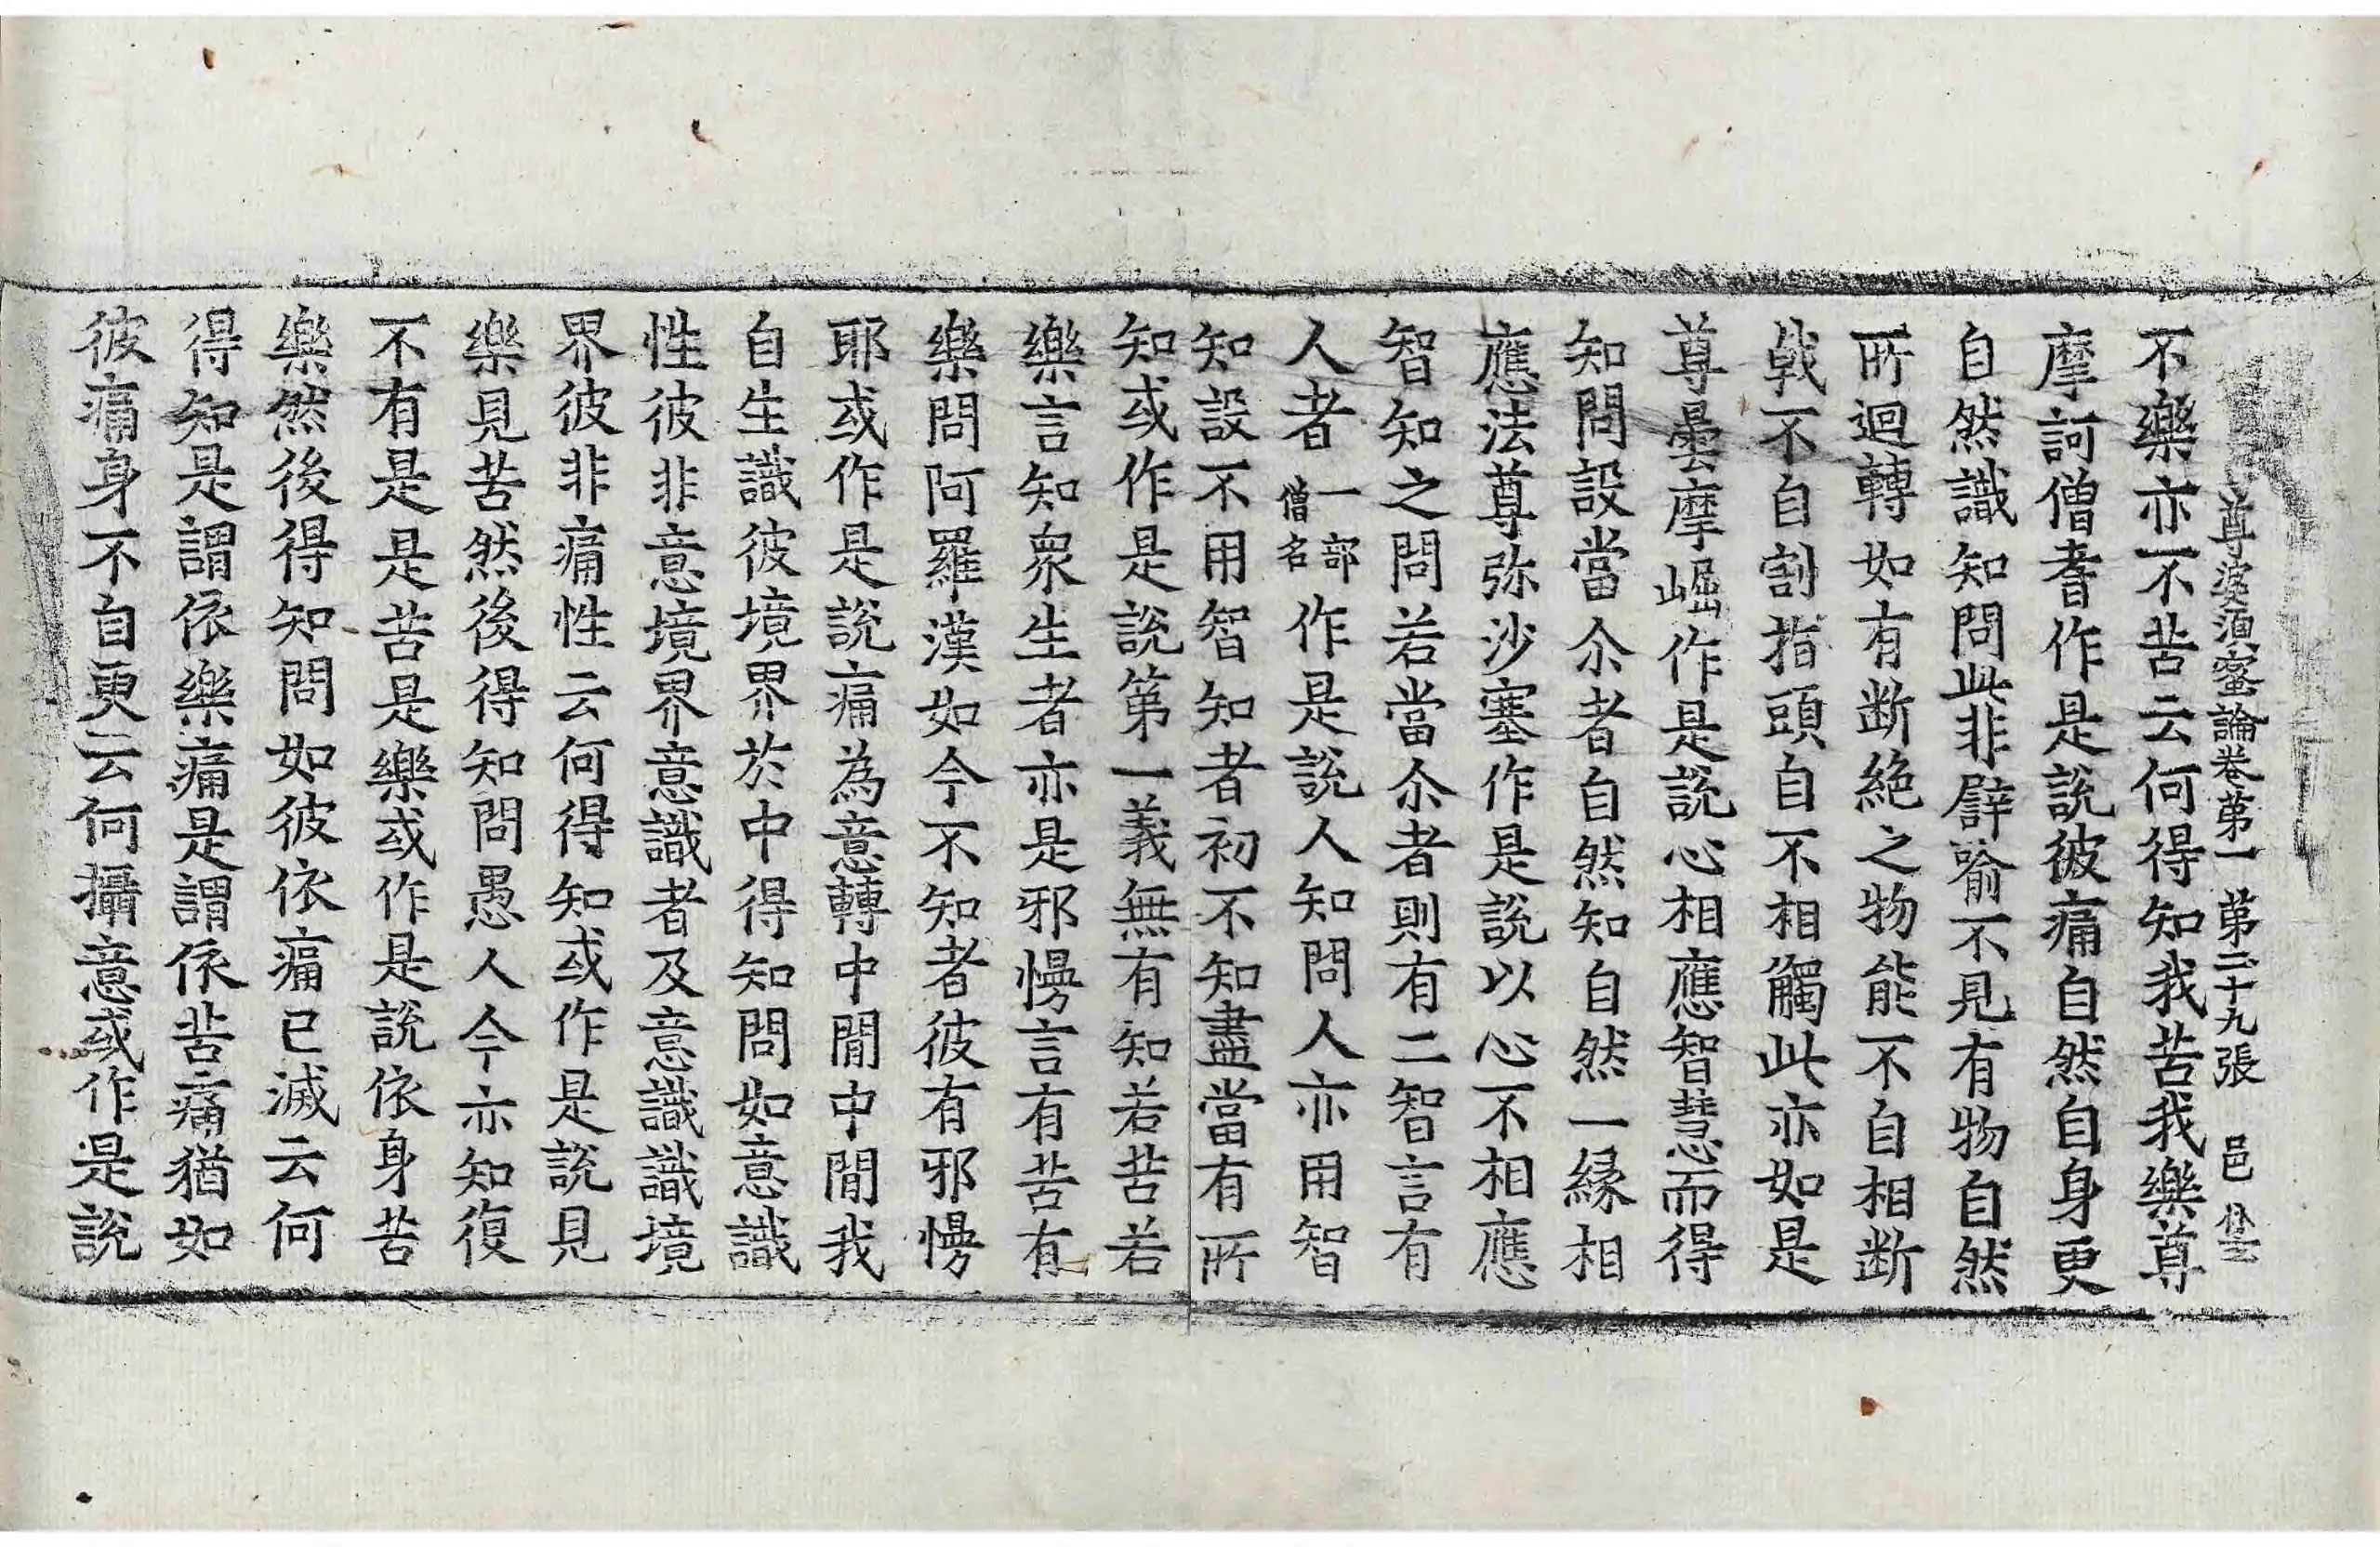 尊婆須蜜論卷第一 第二十九張 邑
不樂亦不苦云何得知我苦我樂尊
摩訶僧耆作是說彼痛自然自身更
自然識知問此非譬喻不見有物自然
所迴轉如有斷絕之物能不自相斷
戟不自割指頭自不相觸此亦如是
尊曇摩崛作是說心相應智慧而得
知問設當尒者自然知自然一緣相
應法尊弥沙塞作是說以心不相應
智知之問若當尒者則有二智言有
人者一部僧名作是說人知問人亦用智
知設不用智知者初不知盡當有所
知或作是說第一義無有知若苦若
樂言知衆生者亦是邪慢言有苦有
樂問阿羅漢如今不知者彼有邪慢
耶或作是說痛為意轉中間中間我
自生識彼境界於中得知問如意識
性彼非意境界意識者及意識識境
界彼非痛性云何得知或作是說見
樂見苦然後得知問愚人今亦知復
不有是是苦是樂或作是說依身苦
樂然後得知問如彼依痛已滅云何
得知是謂依樂痛是謂依苦痛猶如
彼痛身不自更云何攝意或作是說